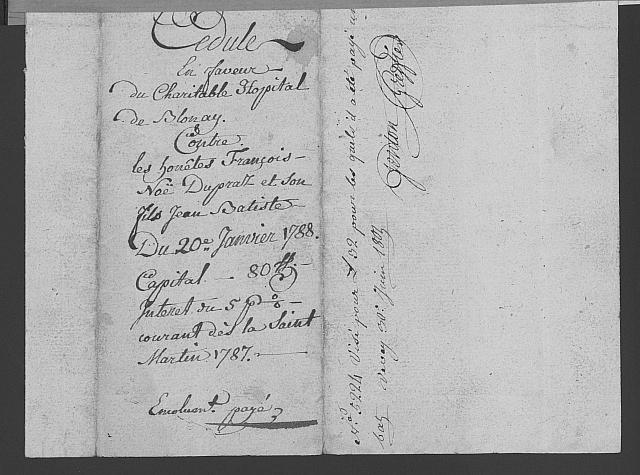 Cedule
En faveur
du Charitable Hopital
de Blonay.
Contre
les honêtes François
Noë Dupraz et son
fils Jean Batiste
Du 20e Janvier 1788.
Capital 80 ff.
Interet du 5 p% 
courant dès la Saint
Martin 1787.
Emolument payé
No 5224 Visé pour L 32 pour les quels il a été payé un
batz Vevey Juin 1803
Genton Greffier